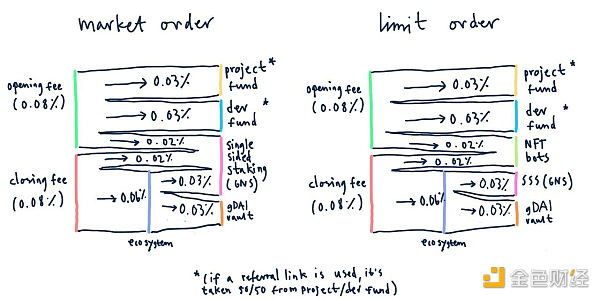 market order
opening fee
(0.08%)
closing fee
(0.08%)
→ 0.03%
→ 0.03%
→ 0.02%
→ 0.02%
→ 0.06%
→ 0.03%
→ 0.03%
project*
fund
dev *
fund
single
sided
staking
(GNS)
gDAI
vault
ecosystem
limit order
opening fee
(0.08%)
closing fee
(0.08%)
→ 0.03%
→ 0.03%
→ 0.02%
→ 0.02%
→ 0.06%
→ 0.03%
→ 0.03%
project*
fund
dev *
fund
NFT
bots
SSS (GNS)
gDAI
vault
ecosystem
* (if a referral link is used, it's
taken 50/50 from project/dev fund)
金色财经